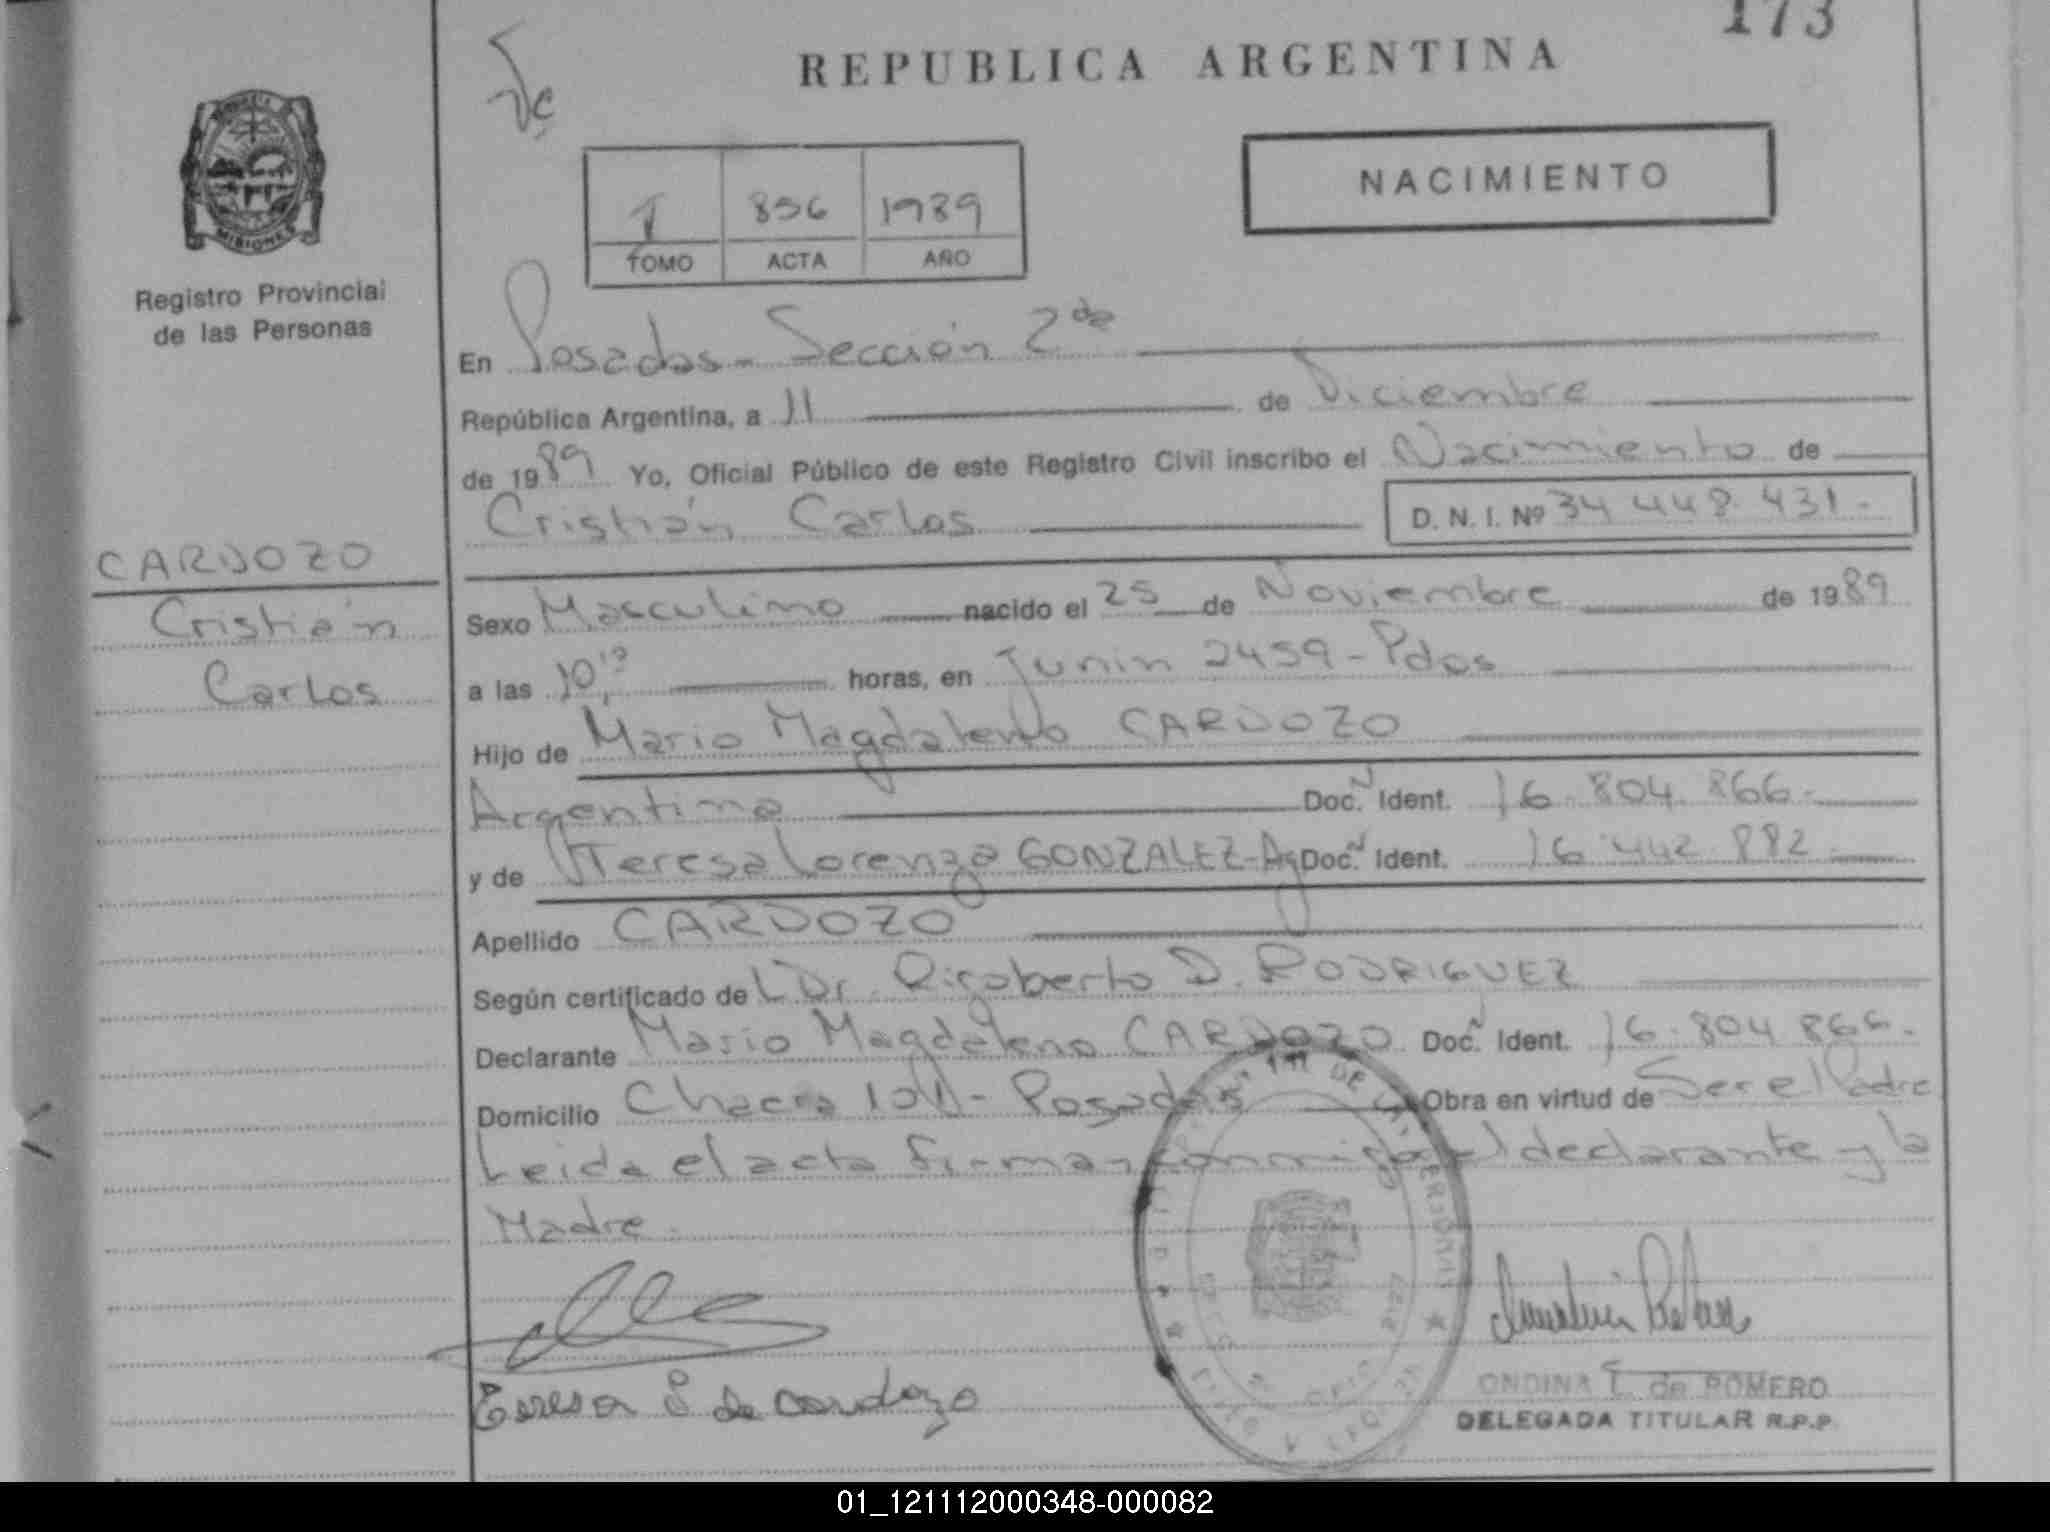 173
REPUBLICA ARGENTINA
NACIMIENTO
MISIONES
Registro Provincial
de las Personas
I 856 1989
TOMO ACTA AÑO
En Posadas - Sección 2da
República Argentina, a 11 de Diciembre
de 1989 Yo, Oficial Público de este Registro Civil inscribo el Nacimiento de
Cristián Carlos D. N. I. Nº 34 448. 431.-
CARDOZO
Cristián
Carlos
Sexo Masculino nacido el 25 de Noviembre de 1989
a las 10, horas, en Junin 2459 - Pdas
Hijo de Mario Magdaleno CARDOZO
Argentino Doc. Ident. 16.804.866.-
y de Teresa Lorenza GONZALEZ - Ag Doc. Ident. 16.442.882
Apellido CARDOZO
Según certificado de L Dr. Rigoberto D. RODRIGUEZ
Declarante Mario Magdaleno CARDOZO Doc. Ident. 16.804.866.-
Domicilio Chacra 101 - Posadas Obra en virtud de Ser el Padre
Leida el acta firman conmigo el declarante y la
Madre.
Teresa G de Cardozo
ONDINA T. de ROMERO
DELEGADA TITULAR R.P.P.
01_121112000348-000082